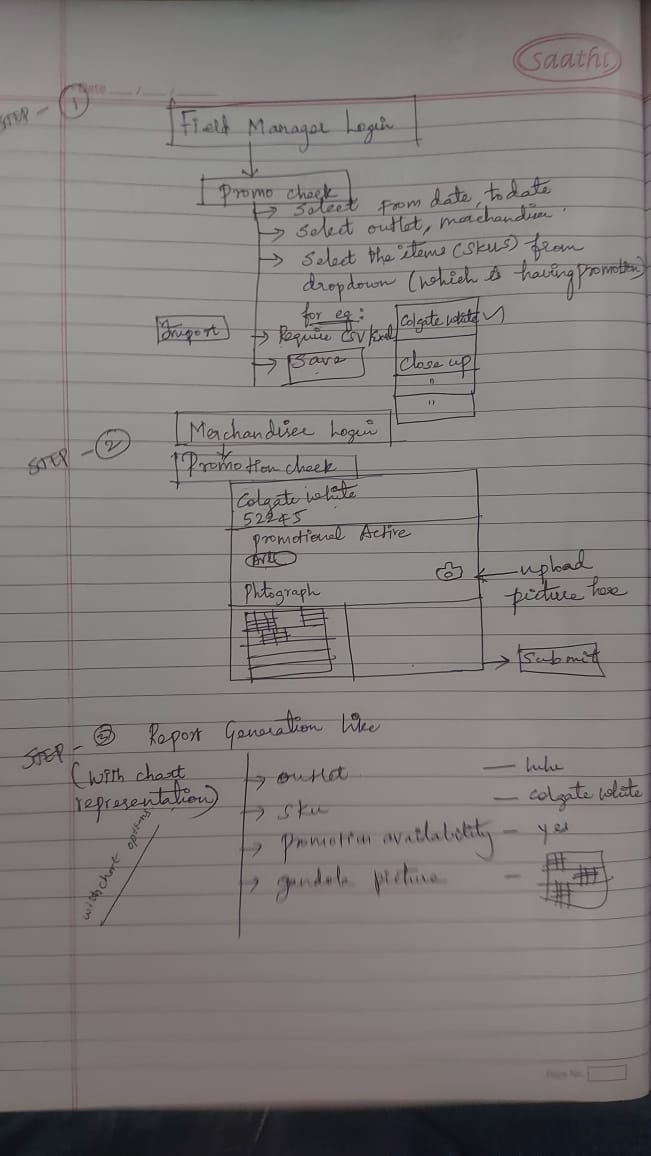 saathi
Date ___/___/___
STEP - 1
Field Manager Login
Promo check
→ Select From date, to date
→ Select outlet, merchandiser.
→ Select the items (SKUS) from
dropdown (which is having promotion)
for eg:
Import
→ Require CSV/Excel
Colgate white ✓
→ Save
Close up
"
"
STEP - 2
Merchandiser Login
Promotion check
Colgate white
52245
promotional Active
Phtograph
← upload
picture here
→ Submit
STEP - 3 Report Generation like
(with chart
representation)
→ outlet — lulu
→ sku — colgate white
→ promotion availability — yes
→ gondola picture —
with chart options
Page No.